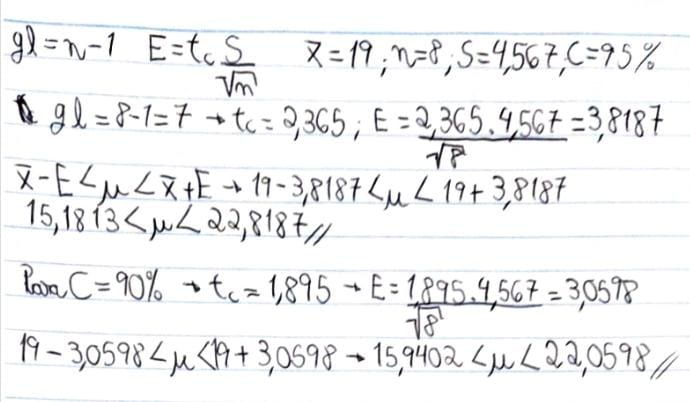 gl = n-1 E = tc S/√n x̄ = 19; n=8; S=4,567; C=95%
gl = 8-1=7 → tc = 2,365; E = 2,365.4,567/√8 = 3,8187
x̄-E < μ < x̄+E → 19-3,8187 < μ < 19+3,8187
15,1813 < μ < 22,8187//
Para C = 90% → tc = 1,895 → E = 1,895.4,567/√8 = 3,0598
19-3,0598 < μ < 19+3,0598 → 15,9402 < μ < 22,0598//